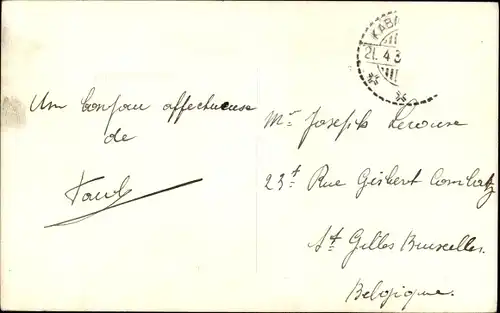 KABA
21.4.3
Un bonjour affectueuse
de
Paul
Mr Joseph Lerouse
23t Rue Gisbert Combatz
St Gilles Bruxelles.
Belgique.